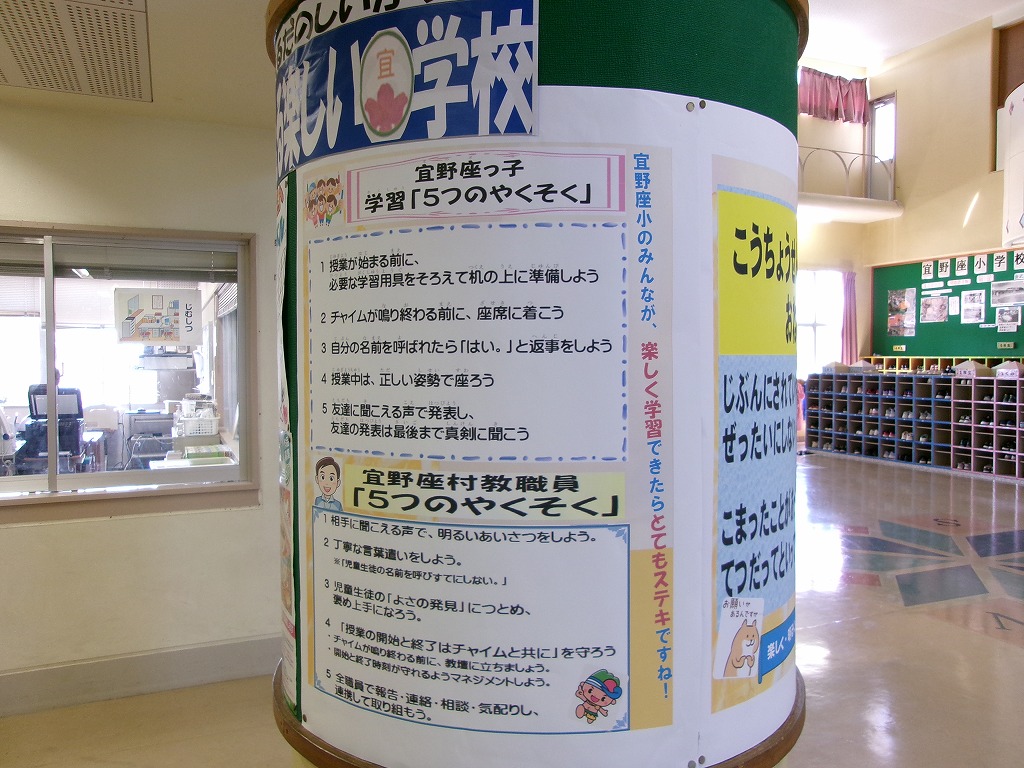 楽しい宜学校
宜野座っ子
学習「5つのやくそく」
1 授業が始まる前に、
必要な学習用具をそろえて机の上に準備しよう
2 チャイムが鳴り終わる前に、座席に着こう
3 自分の名前を呼ばれたら「はい。」と返事をしよう
4 授業中は、正しい姿勢で座ろう
5 友達に聞こえる声で発表し、
友達の発表は最後まで真剣に聞こう
宜野座村教職員
「5つのやくそく」
1 相手に聞こえる声で、明るいあいさつをしよう。
2 丁寧な言葉遣いをしよう。
※「児童生徒の名前を呼びすてにしない。」
3 児童生徒の「よさの発見」につとめ、
褒め上手になろう。
4 「授業の開始と終了はチャイムと共に」を守ろう
・チャイムが鳴り終わる前に、教壇に立ちましょう。
・開始と終了時刻が守れるようマネジメントしよう。
5 全職員で報告・連絡・相談・気配りし、
連携して取り組もう。
宜野座小のみんなが、楽しく学習できたらとてもステキですね!
こうちょうせ
じぶんにされて
ぜったいにし
こまったことが
てつだってとい
お願いが
あるんですが
楽しく・
じむしつ
宜野座小学校